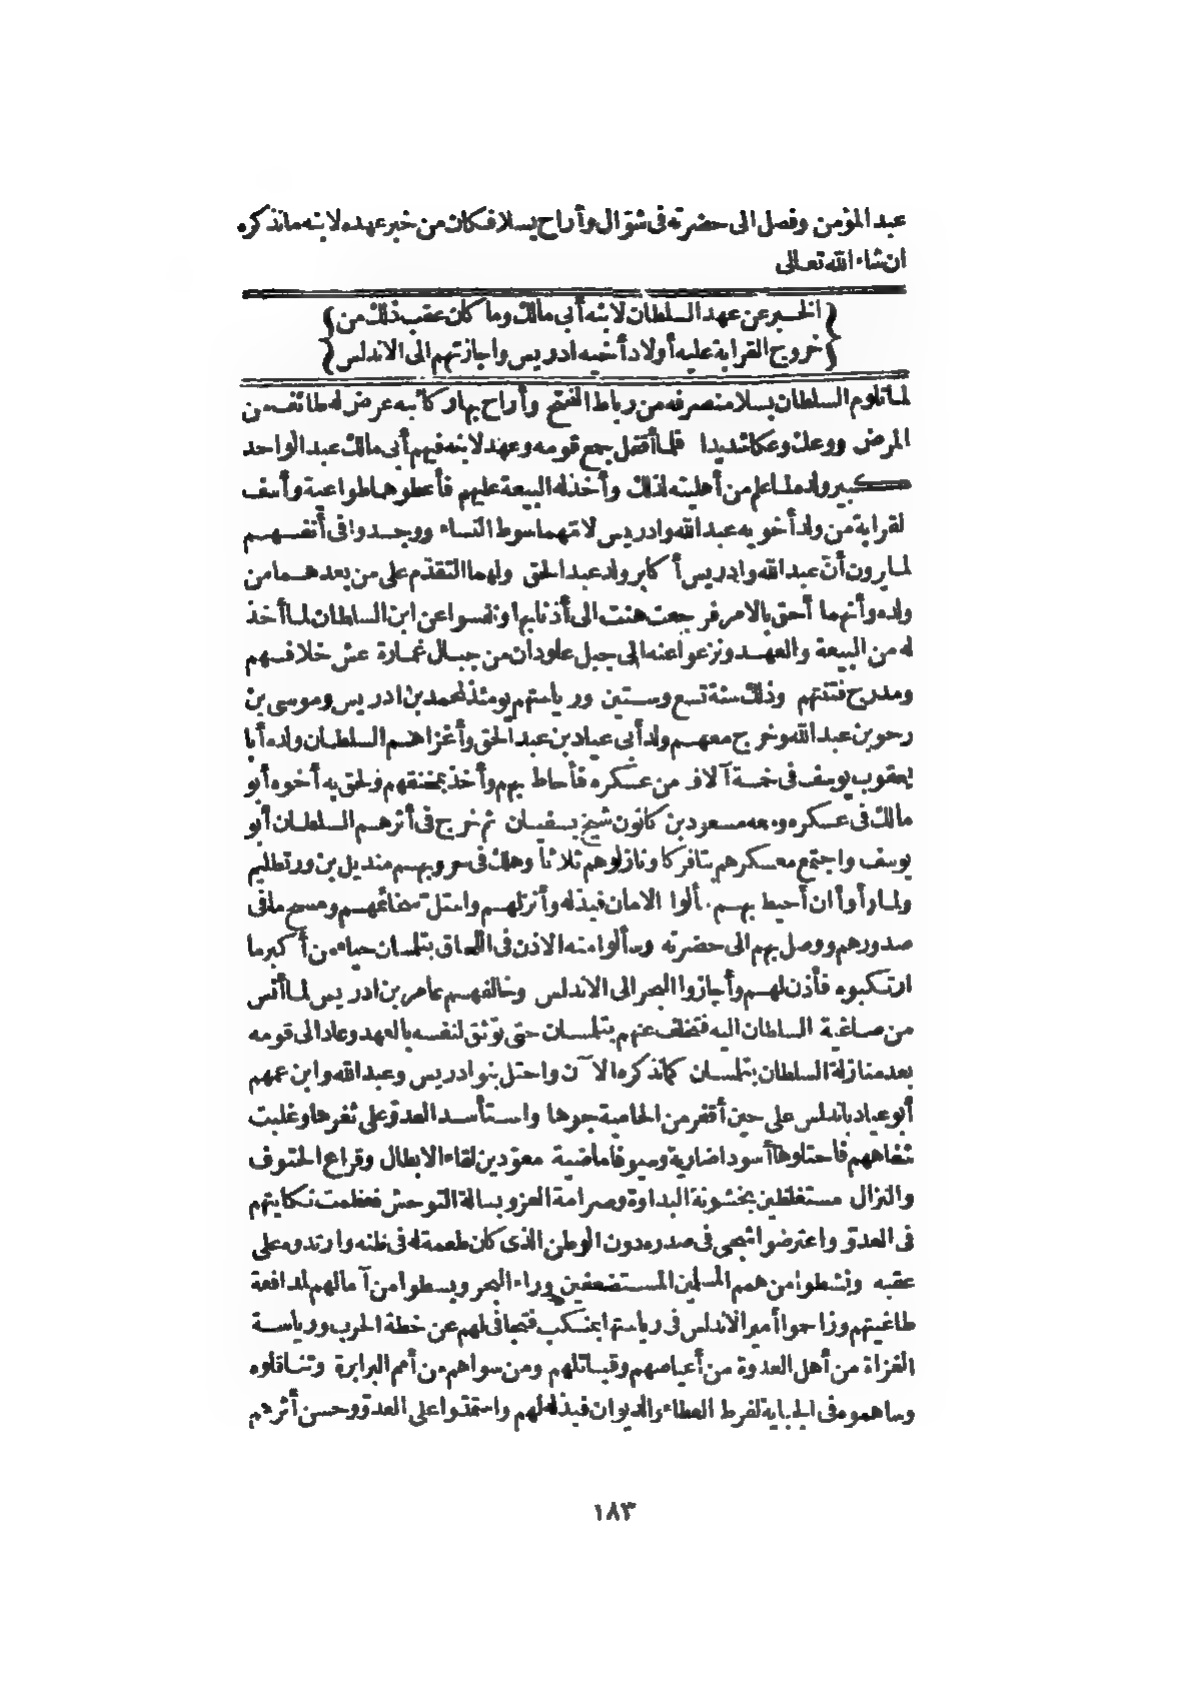 عبد المؤمن وفصل الى حضرته فى شوّال وأراح بسلا فكان من خبر عهده لابنه ما نذكره
ان شاء الله تعالى
{الخبر عن عهد السلطان لابنه أبى مالك وما كان عقب ذلك من}
{خروج القرابة عليه أولاد أخيه ادريس واجازتهم الى الاندلس}
لما تلوم السلطان بسلا منصرفه من رباط الفتح وأراح بها ركائبه عرض له طائف من
المرض ووعك وعكا شديدا فلما أفقل جمع قومه وعهد لابنه فيهم أبى مالك عبد الواحد
كبير ولده لما علم من أهليته لذلك وأخذ له البيعة عليهم فأعطوها طواعية وأسف
لقرابة من ولد أخويه عبد الله وادريس لامّهما سوط النساء ووجدوا فى أنفسهم
لما يرون أنّ عبد الله وادريس أكابر ولد عبد الحق ولهما التقدّم على من بعدهما من
ولده وأنهما أحق بالامر فرجعت هنت الى أذنابها ونفسوا عن ابن السلطان لما أخذ
له من البيعة والعهد ونزعوا عنه الى جبل علودان من جبال غمارة عش خلافهم
ومدرج فتنتهم وذلك سنة تسع وستين ورياستهم يومئذ لمحمد بن ادريس وموسى بن
رحو بن عبد الله وخرج معهم ولد أبى عياد بن عبد الحق وأغزاهم السلطان ولده أبا
يعقوب يوسف فى خمسة آلاف من عسكره فأحاط بهم وأخذ بمخنقهم ولحق به أخوه أبو
مالك فى عسكره ومعه مسعود بن كانون شيخ سفيان ثم خرج فى أثرهم السلطان أبو
يوسف واجتمع معسكرهم بتافركا ونازلوهم ثلاثا وهلك فى حروبهم منديل بن ورتطليم
ولما رأوا ان أحيط بهم سألوا الامان فبذله وأنزلهم واستلّ سخائمهم ومسح ما فى
صدورهم ووصل بهم الى حضرته وسألوا منه الاذن فى اللحاق بتلمسان حياء من أكبر ما
ارتكبوه فأذن لهم وأجازوا البحر الى الاندلس وخالفهم عامر بن ادريس لما أنس
من صاغية السلطان اليه فتخلف عنهم بتلمسان حتى توثق لنفسه بالعهد وعاد الى قومه
بعد منازلة السلطان بتلمسان كما نذكره الآن واحتل بنو ادريس وعبد الله وابن عمهم
أبو عياد باندلس على حين أقفر من الحامية جوها واستأسد العدوّ على ثغرها وغلبت
شفاههم فاحتلوها أسودا ضارية وسيوفا ماضية معوّدين لقاء الابطال وقراع الحتوف
والنزال مستغلظين بخشونة البداوة وصرامة العز وبسالة التوحش فعظمت نكايتهم
فى العدوّ واعترضوا شجى فى صدره دون الوطن الذى كان طعمة له فى ظنه وارتدوه على
عقبه ونشطوا من همم المسلمين المستضعفين وراء البحر وبسطوا من آمالهم لمدافعة
طاغيتهم وزاحموا أمير الاندلس فى رياستها بمنكب فتجافى لهم عن خطة الحرب ورياسة
الغزاة من أهل العدوة من أعياصهم وقبائلهم ومن سواهم من أمم البرابرة وتناقلوه
وساهموه فى الجباية لفرط العطاء والديوان فبذله لهم واستمدّوا على العدوّ وحسن أثرهم
١٨٣